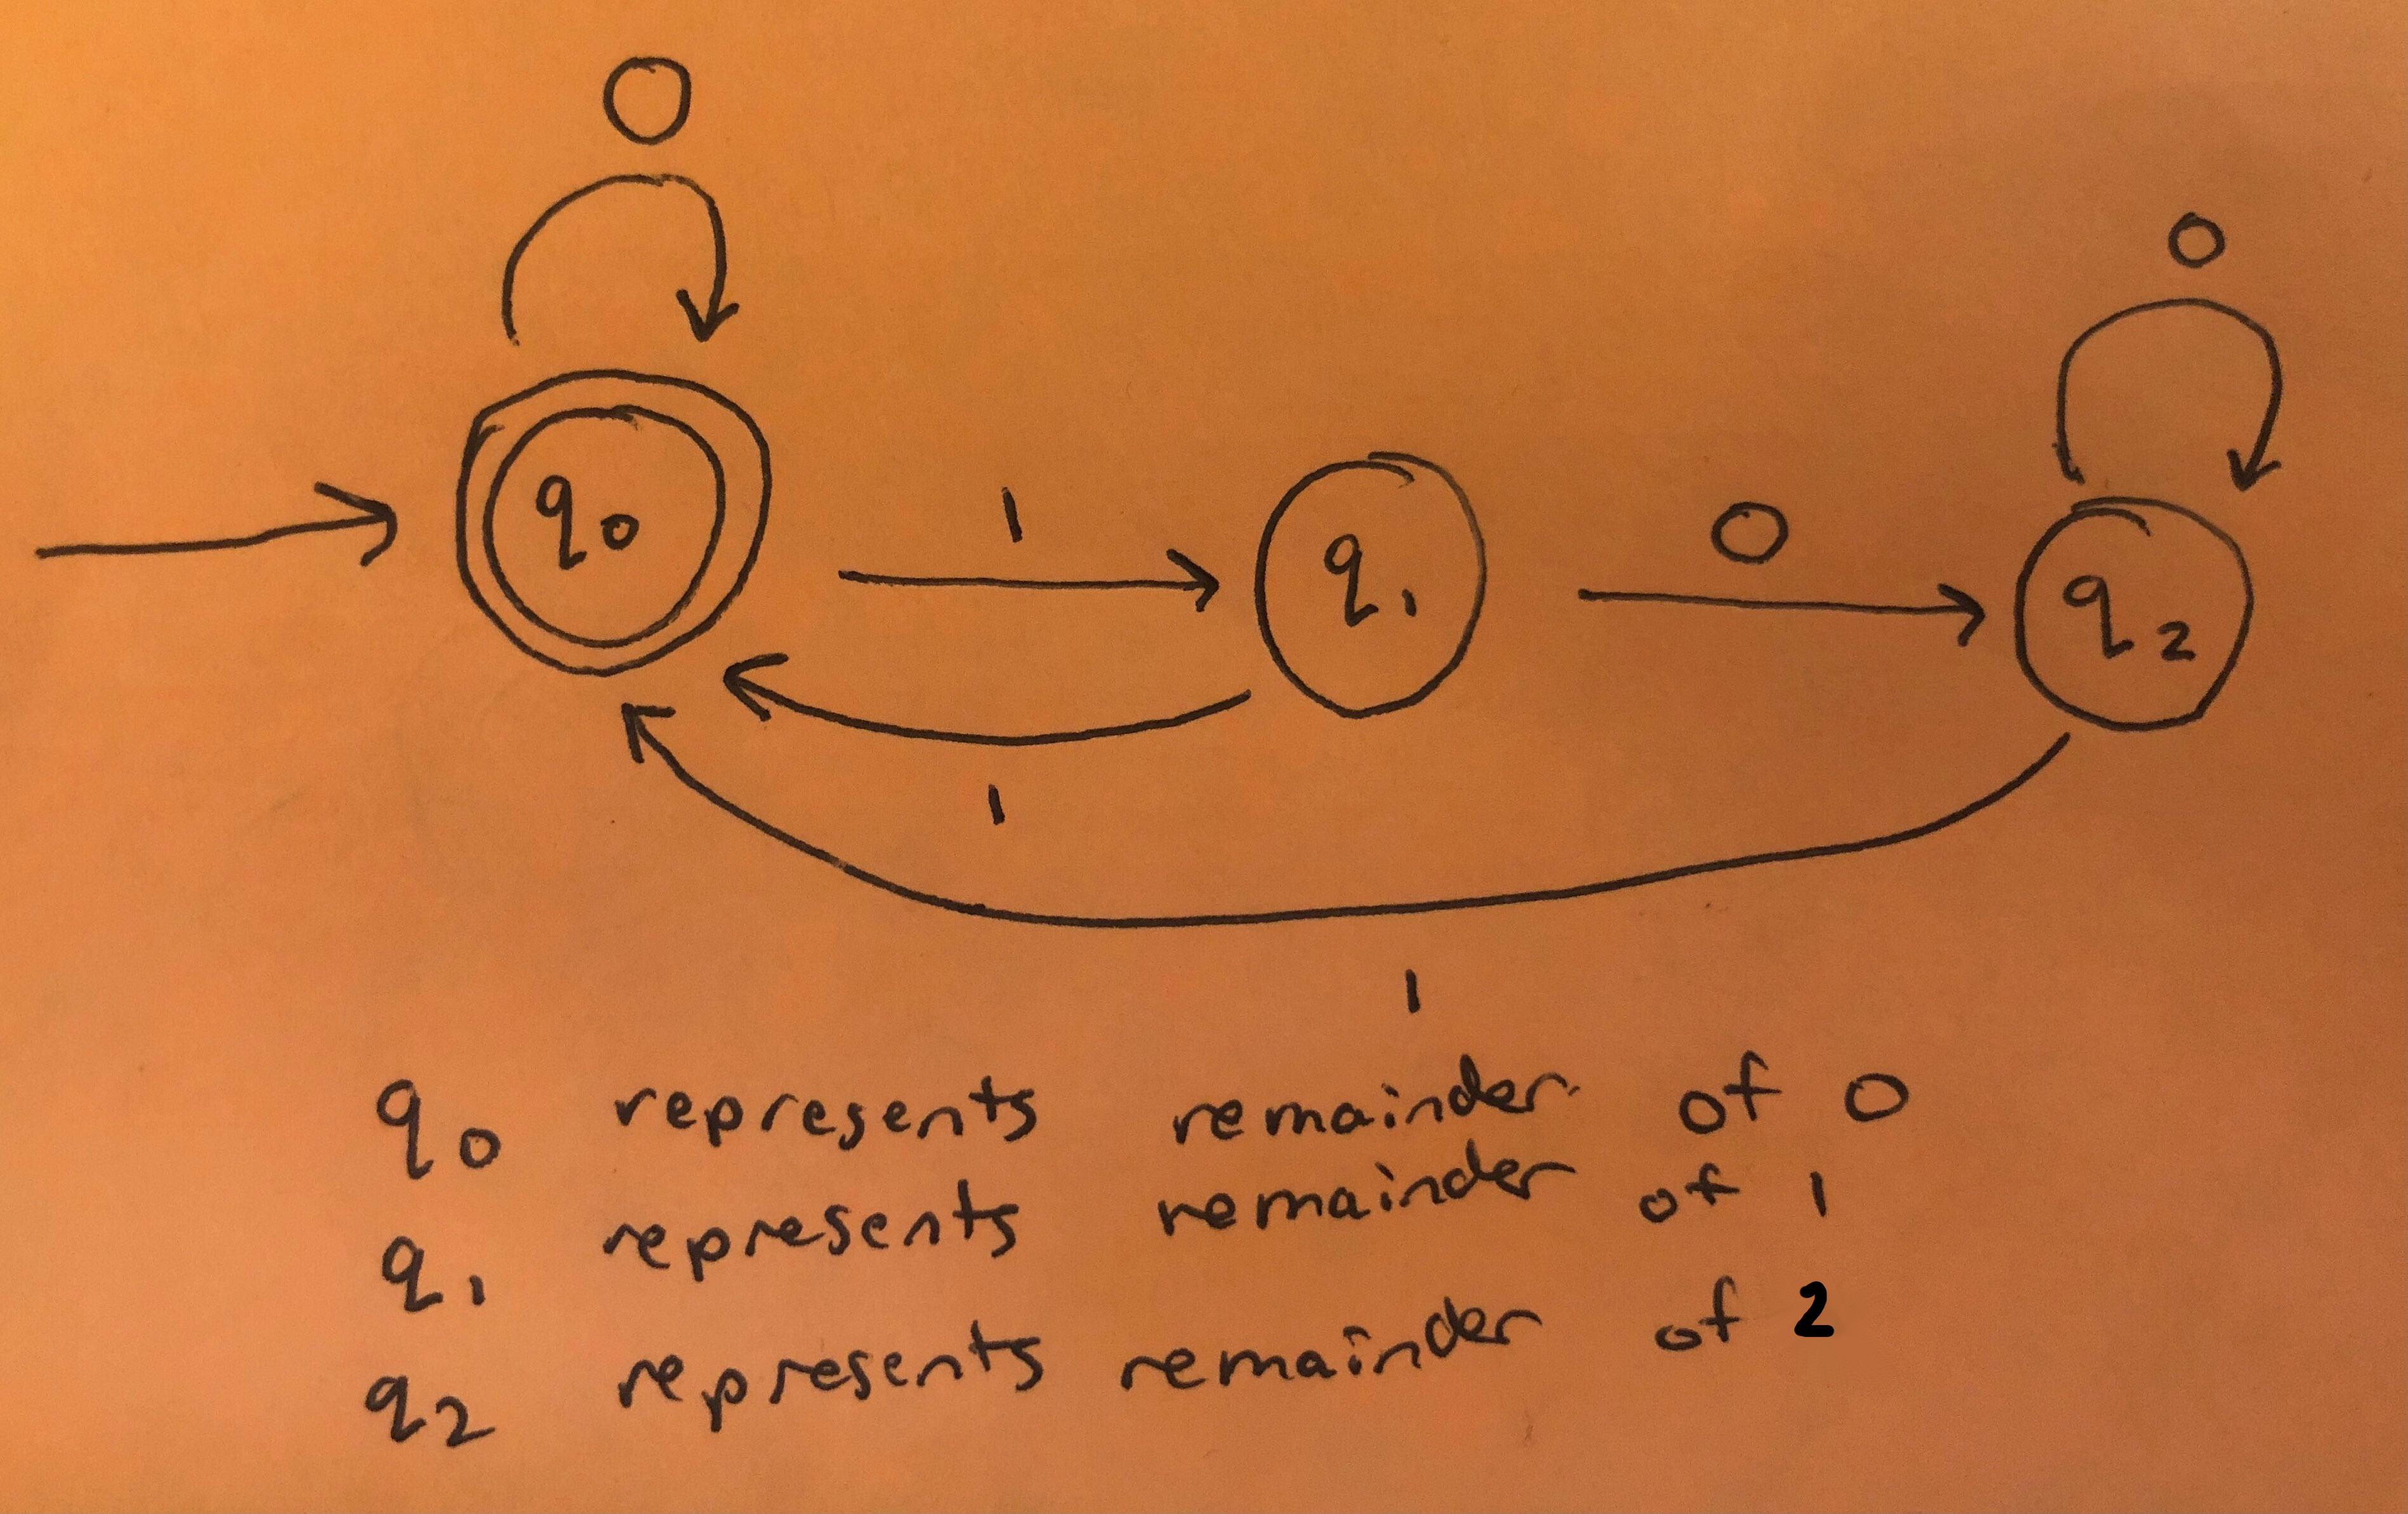 0
0
q0 1 q1 0 q2
1
1
q0 represents remainder of 0
q1 represents remainder of 1
q2 represents remainder of 2